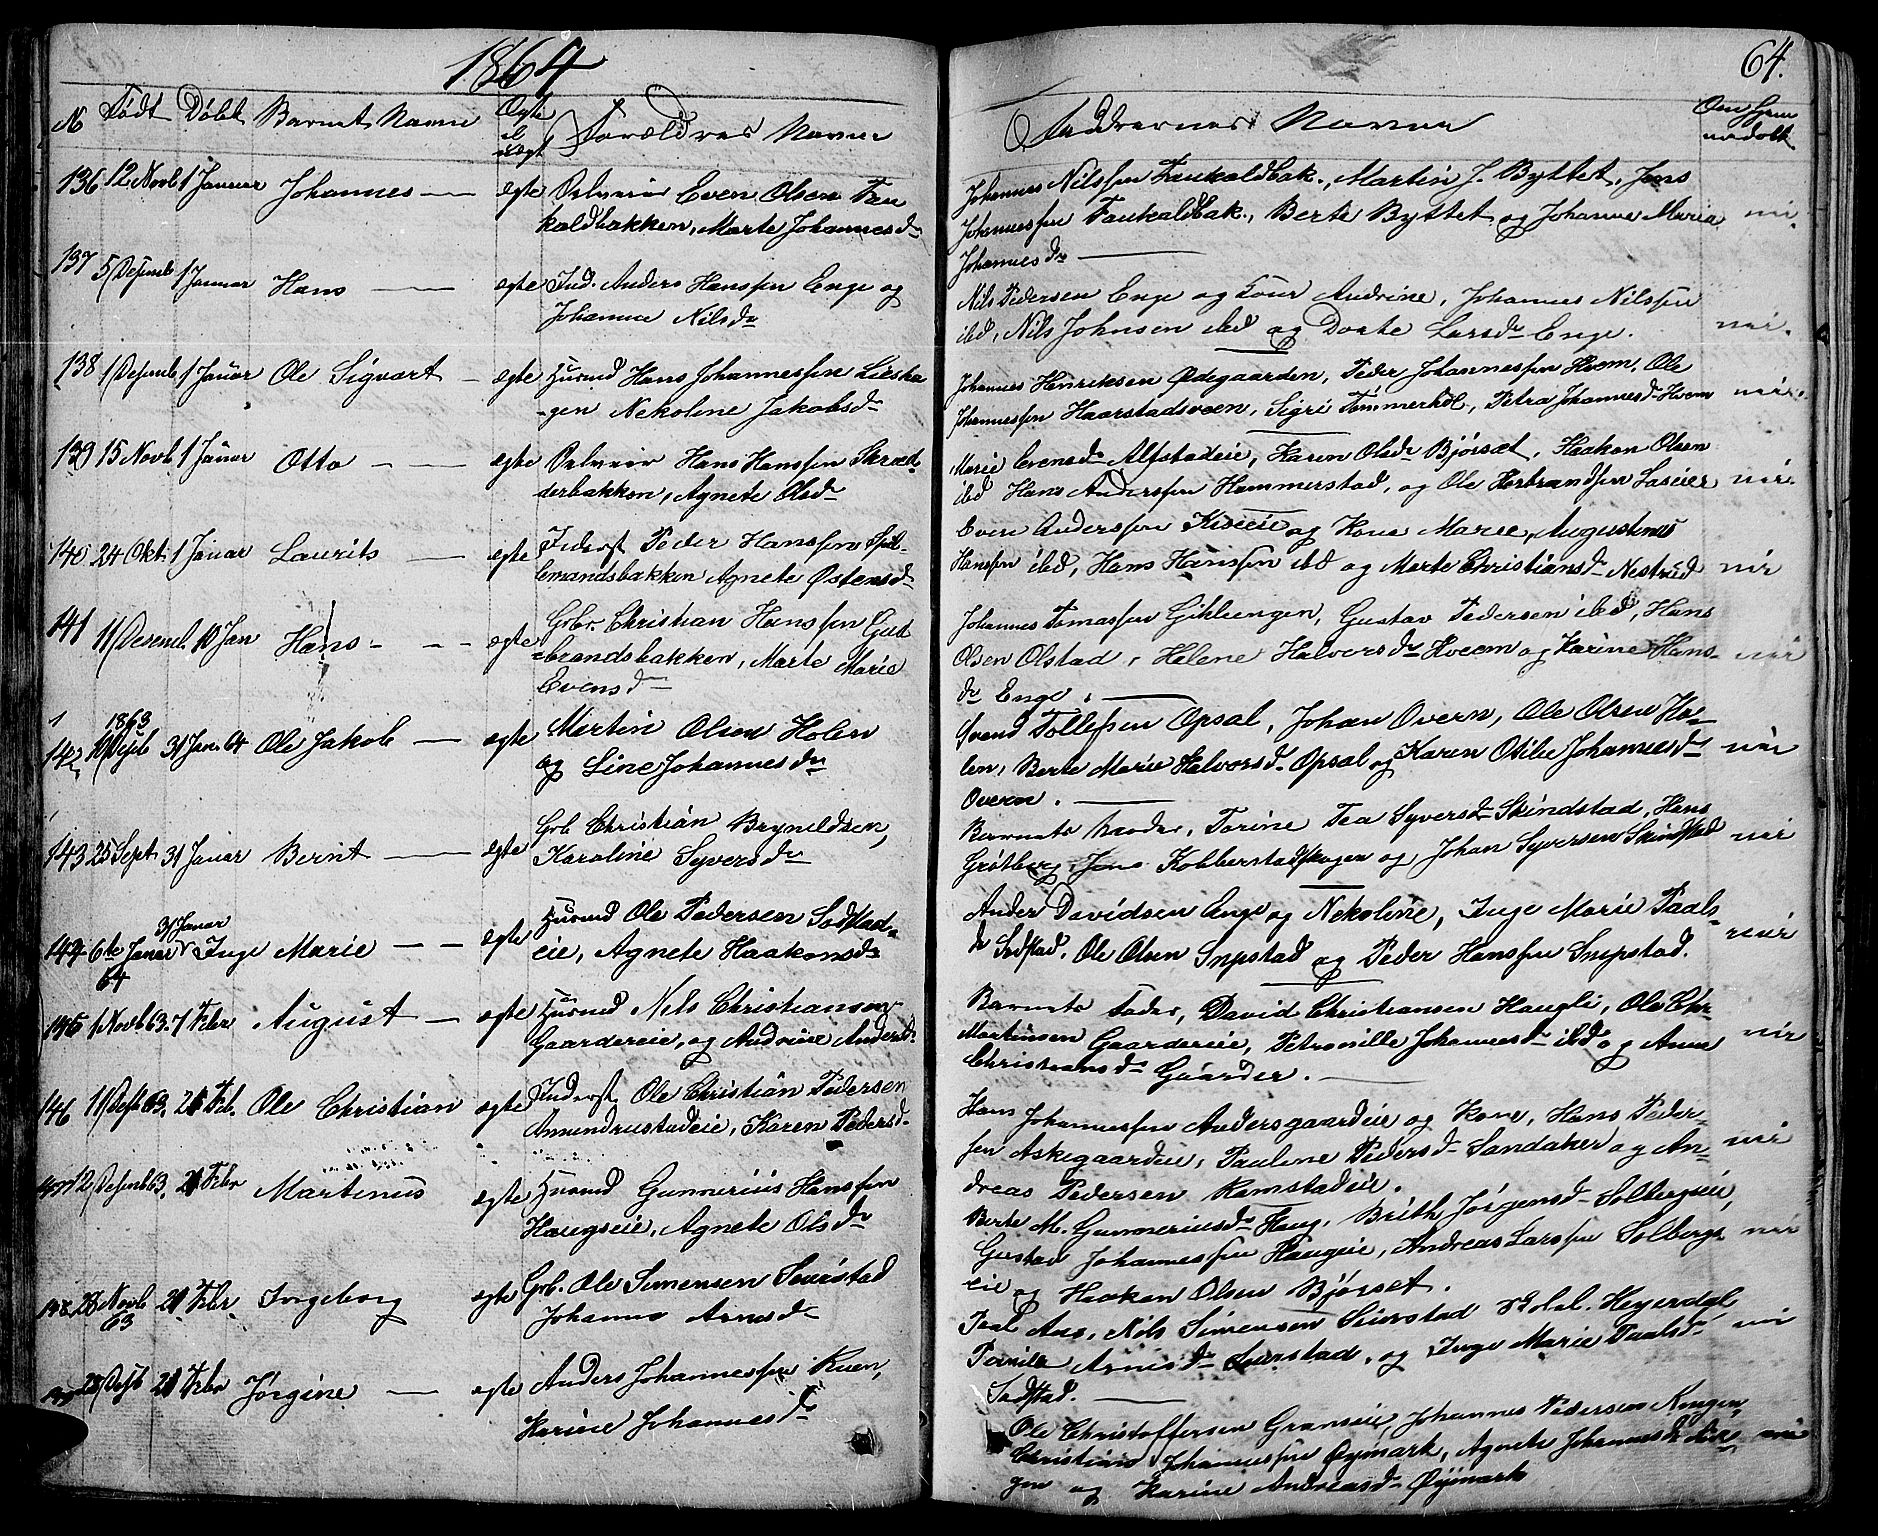 1864
64.
N Født Døbt Barnets Navne Ægte el uægt Forældres Navne
Faddernes Navne Om Hjemmedøbt
136 12 Novb 1 Januar Johannes ægte Even Olsen Fau
kaldbakken, Marte Johannesd
Johannes Nilssen Faukaldbak., Martin J. Byttet, Jens
Johannessen Faukaldbak., Berte Byttet og Johanne Maria
Johannesd
137 5 Desemb 1 Januar Hans ægte Ind. Anders Hanssen Enge og
Johanne Nilsd
Nils Pedersen Enge og Kone Andrine, Johannes Nilssen
ibd, Nils Johnsen ibd og Dorte Larsd Enge.
138 1 Desemb 1 Januar Ole Sigvart ægte Husmd Hans Johannessen Lieshagen
Nekoline Jakobsd
Johannes Henriksen Ødegaarden, Peder Johannessen Hvem, Ole
Johannessen Haarstadsveen, Sigri Tømmerhol, Petra Johannesd Hvem
139 15 Novb 1 Januar Otto ægte Hans Hanssen Skræd
derbakken, Agnete Olsd
Marie Evensd Alfstadeie, Karen Olsd Bjørset, Haakon Olsen
ibd Hans Anderssen Hammerstad, og Ole Herbrandsen
140 24 Okt 1 Januar Laurits ægte Inderst Peder Hanssen Spil-
lemandsbakken Agnete Østensd
Even Anderssen og Kone Marie, Augustinus
Hanssen ibd, Hans Hanssen ibd og Marte Christiansd Nestrud
141 11 Desemb 10 Jan Hans ægte Gbr. Christian Hanssen Gud
brandsbakken, Marte Marie
Evensd
Johannes Tomassen Gihleengen, Gustav Pedersen ibd, Hans
Olsen Olstad, Helene Halvorsd Hveem og Karine Hans-
d Enge.
1863
142 Desb 31 Jan. 64 Ole Jakob ægte Martin Olsen Holen
og Line Johannesd
Svend Tollefsen Opsal, Johan Overn, Ole Olsen Ho-
len, Berte Marie Halvorsd Opsal og Karen Otilie Johannesd
Overn.
143 25 Sept 31 Januar Bernt ægte Grb Christian Bryneldsen,
Karoline Syversd
Barnets Moder, Torine Tea Syversd Skindstad, Hans
Grøtberg, Jens Kobberstadshagen og Johan Syversen Skindstad
144 6te Januar 64 31 Januar Inge Marie ægte Husmd Ole Pedersen Sodstad
eie, Agnete Haakonsd
Ander Davidsen Enge og Nekoline, Inge Marie Paals-
d Sodstad, Ole Olsen Snipstad og Peder Hanssen Snipstad.
145 1 Novb 63. 7 Febr August ægte Husmd Nils Christiansen
Gaardereie, og Andrine Andersd
Barnets Fader, David Christiansen Haugli, Ole Chr.
Martinsen Gaardereie, Petronille Johannesd ibd og Anne
Christiansd Gaarder.
146 11 Desb 63, 21 Feb. Ole Christian ægte Inderst Ole Christian Pedersen
Amundrustadeie, Karen Pedersd
Hans Johannessen Andersgaardeie og Kone, Hans Peder-
sen Askegaardeie, Pauline Pedersd Sandaker og An-
dreas Pedersen Ramstadeie.
147 12 Desemb 63, 21 Febr Martinus ægte Husmd Gunnerius Hanssen
Haugseie, Agnete Olsd
Berte M. Gunneriusd Haug, Brith Jørgensd Solbergseie,
Gustad Johannessen Haugeie, Andreas Larssen Solbergs
eie og Haaken Olsen Bjørset.
148 28 Novb 63 21 Febr Ingeborg ægte Grb. Ole Simensen Seierstad
Johanne Arnesd
Paal Aas, Nils Simensen Seierstad Heyerdal
Pernille Arnesd Seierstad, og Inge Marie Paalsd
Sodstad.
149 28 Desb 21 Febr Jørgine ægte Anders Johannessen Ruen,
Karine Johannesd
Ole Christoffersen Granseie, Johannes Pedersen Ringen,
Christian Johannessen Øymark, Agnete Johannesd Rin-
gen og Karine Andreasd Øymark